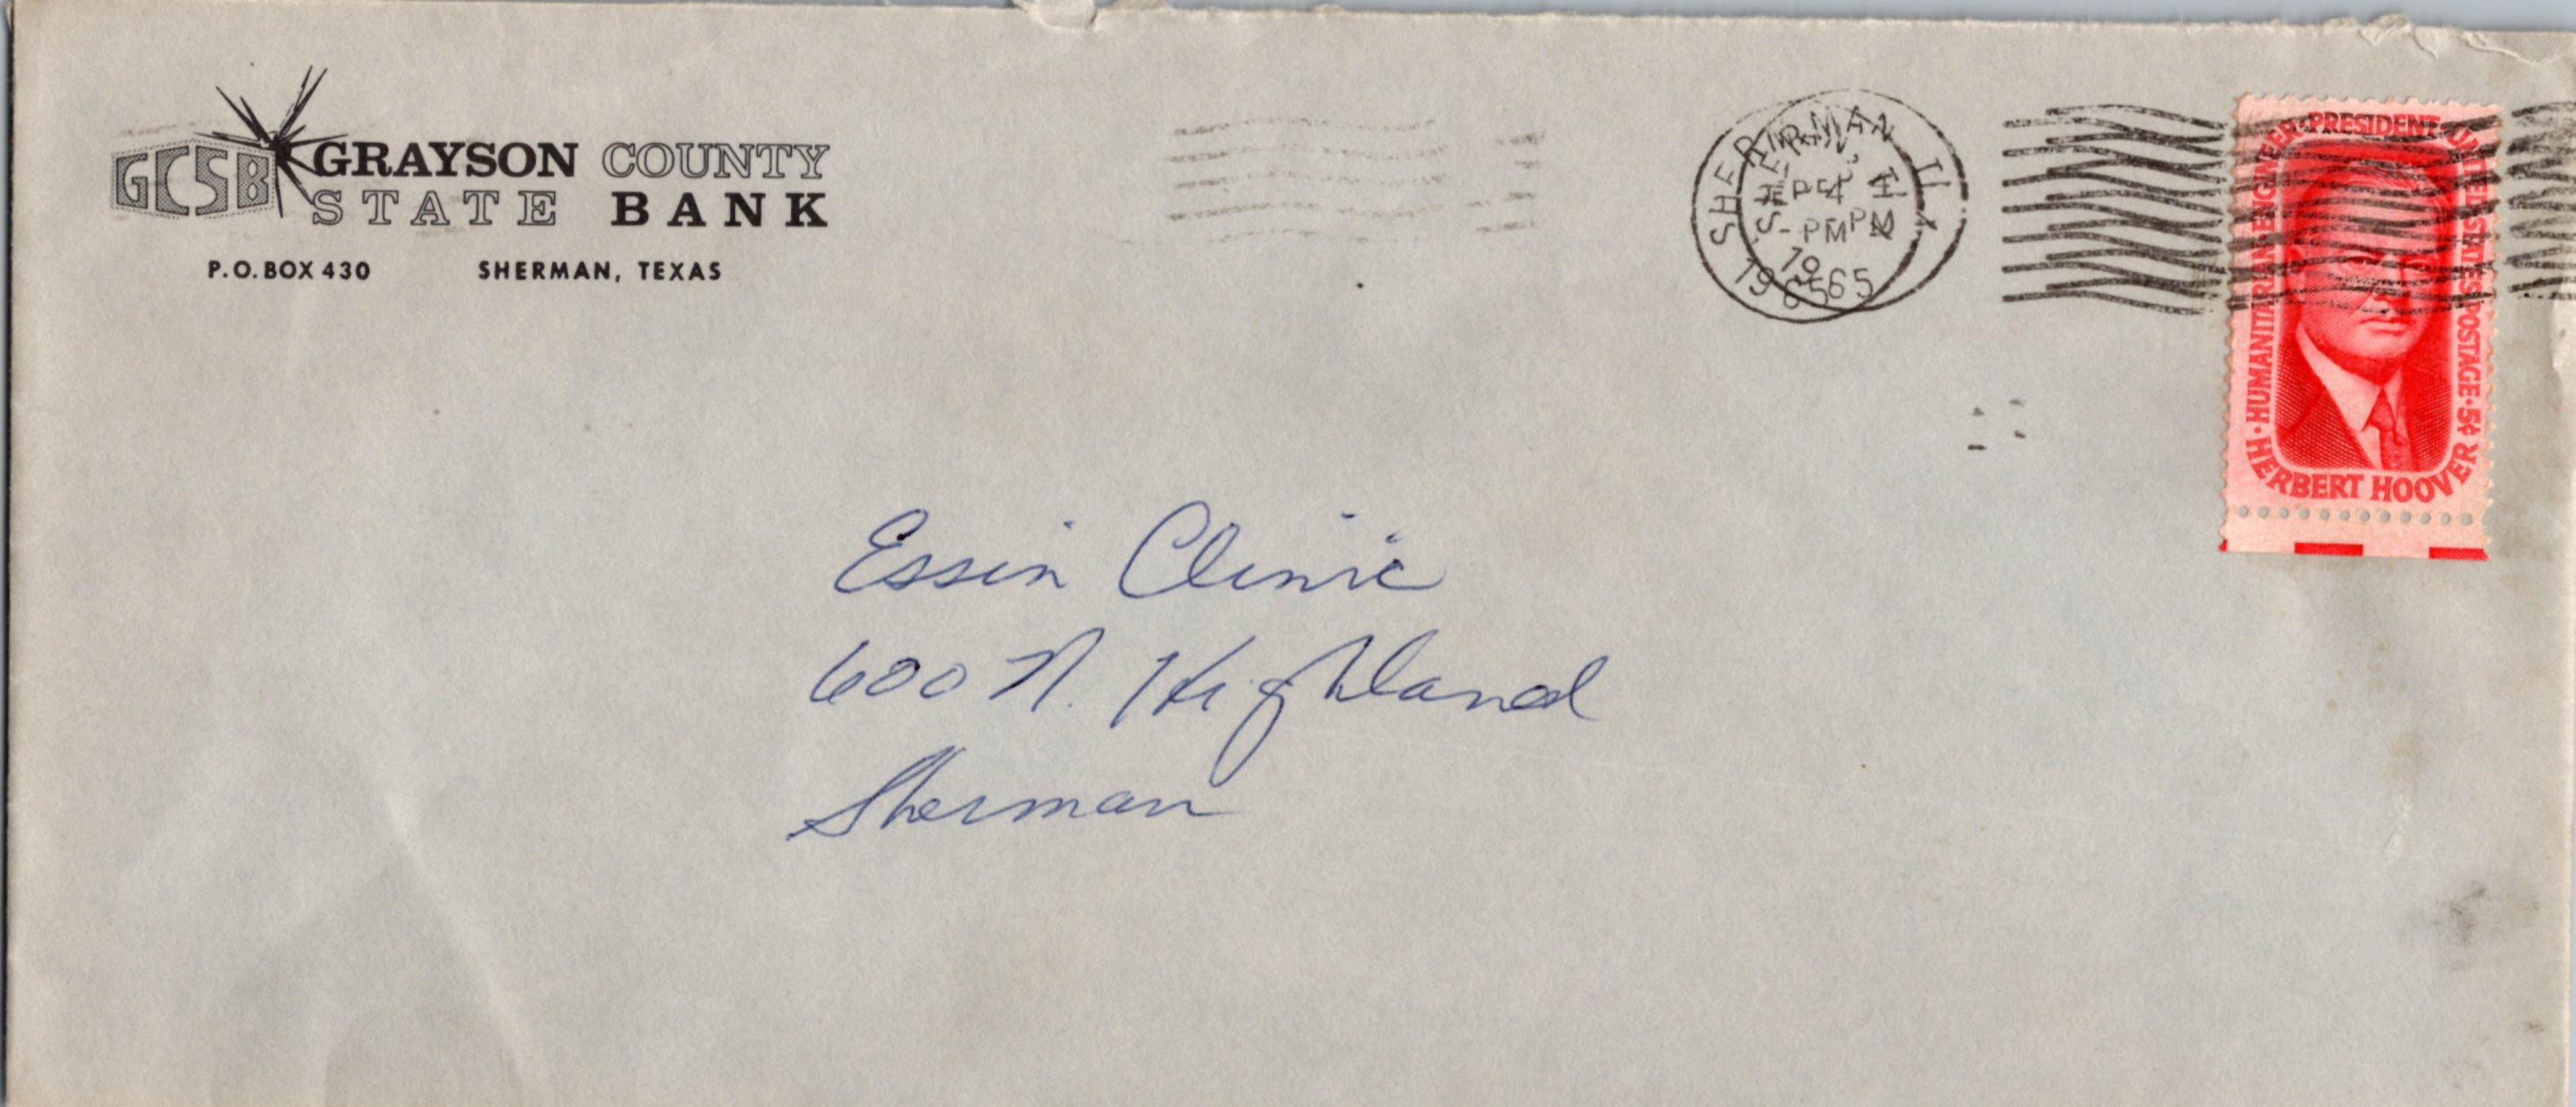 GCSB GRAYSON COUNTY
STATE BANK
P.O. BOX 430 SHERMAN, TEXAS
SHERMAN
PM PM
1965
HUMANITARIAN·ENGINEER·PRESIDENT·UNITED STATES POSTAGE·5¢
HERBERT HOOVER
Essin Clinic
600 N. Highland
Sherman